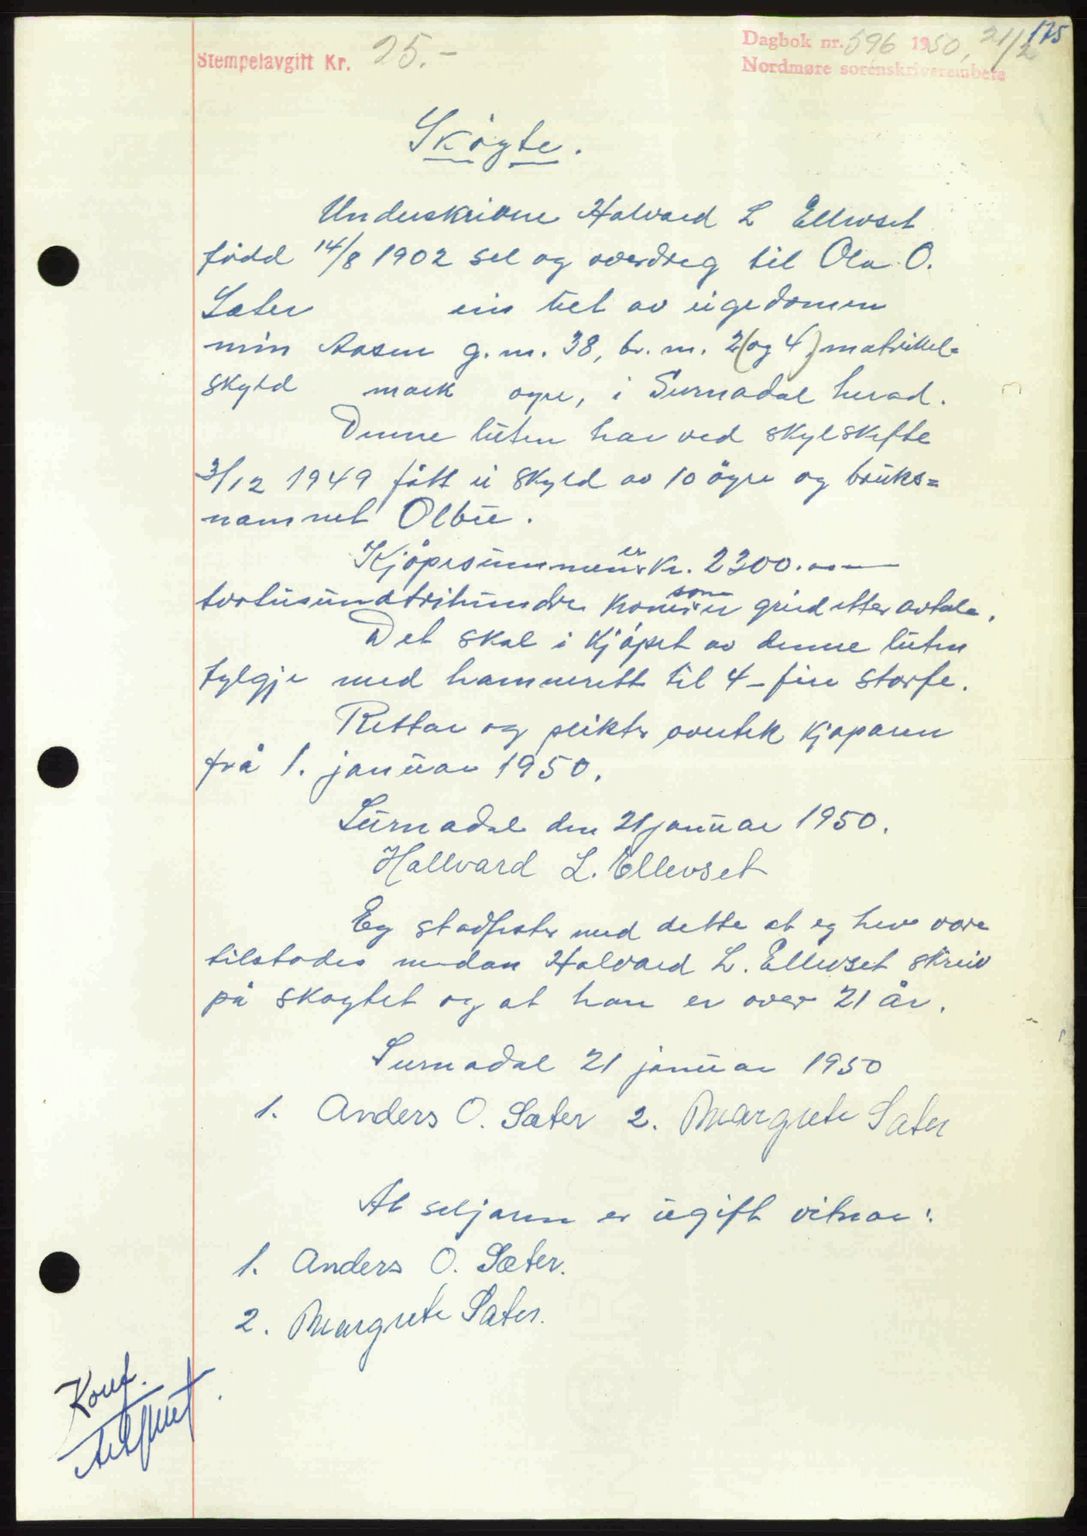 175
Stempelavgift Kr. 25.-
Dagbok nr. 596 1950, 21/2
Nordmøre sorenskriverembete
Skøyte.
Underskrivne Halvard L Ellevset
född 14/8 1902 sel og overdreg til Ola O.
Sæter ein teel av eigedomen
min Aasen g. n. 38, br. n. 2 (og 4) matrikel-
skyld mark øyre, i Surnadal herad.
Denne luten har ved skylskifte
3/12 1949 fått ei skyld av 10 öyre og bruks=
namnet Olbu.
Kjöpesummen er kr. 2300.oo
totusundtrihundre kroner som er greid etter avtale.
Det skal i kjöpet av denne luten
fylgje med hamnerett til 4 - fire storfe.
Rettar og plikter overtek kjøparen
frå 1. januar 1950.
Surnadal den 21 januar 1950.
Hallvard L. Ellevset
Eg stadfester med dette at eg hev vore
tilstades medan Halvard L. Ellevset skreiv
på skøytet og at han er over 21 år.
Surnadal 21 januar 1950
1. Anders O. Sæter 2. Margrete Sæter
At seljaren er ugift vitnar:
1. Anders O. Sæter.
2. Margrete Sæter.
Konf.